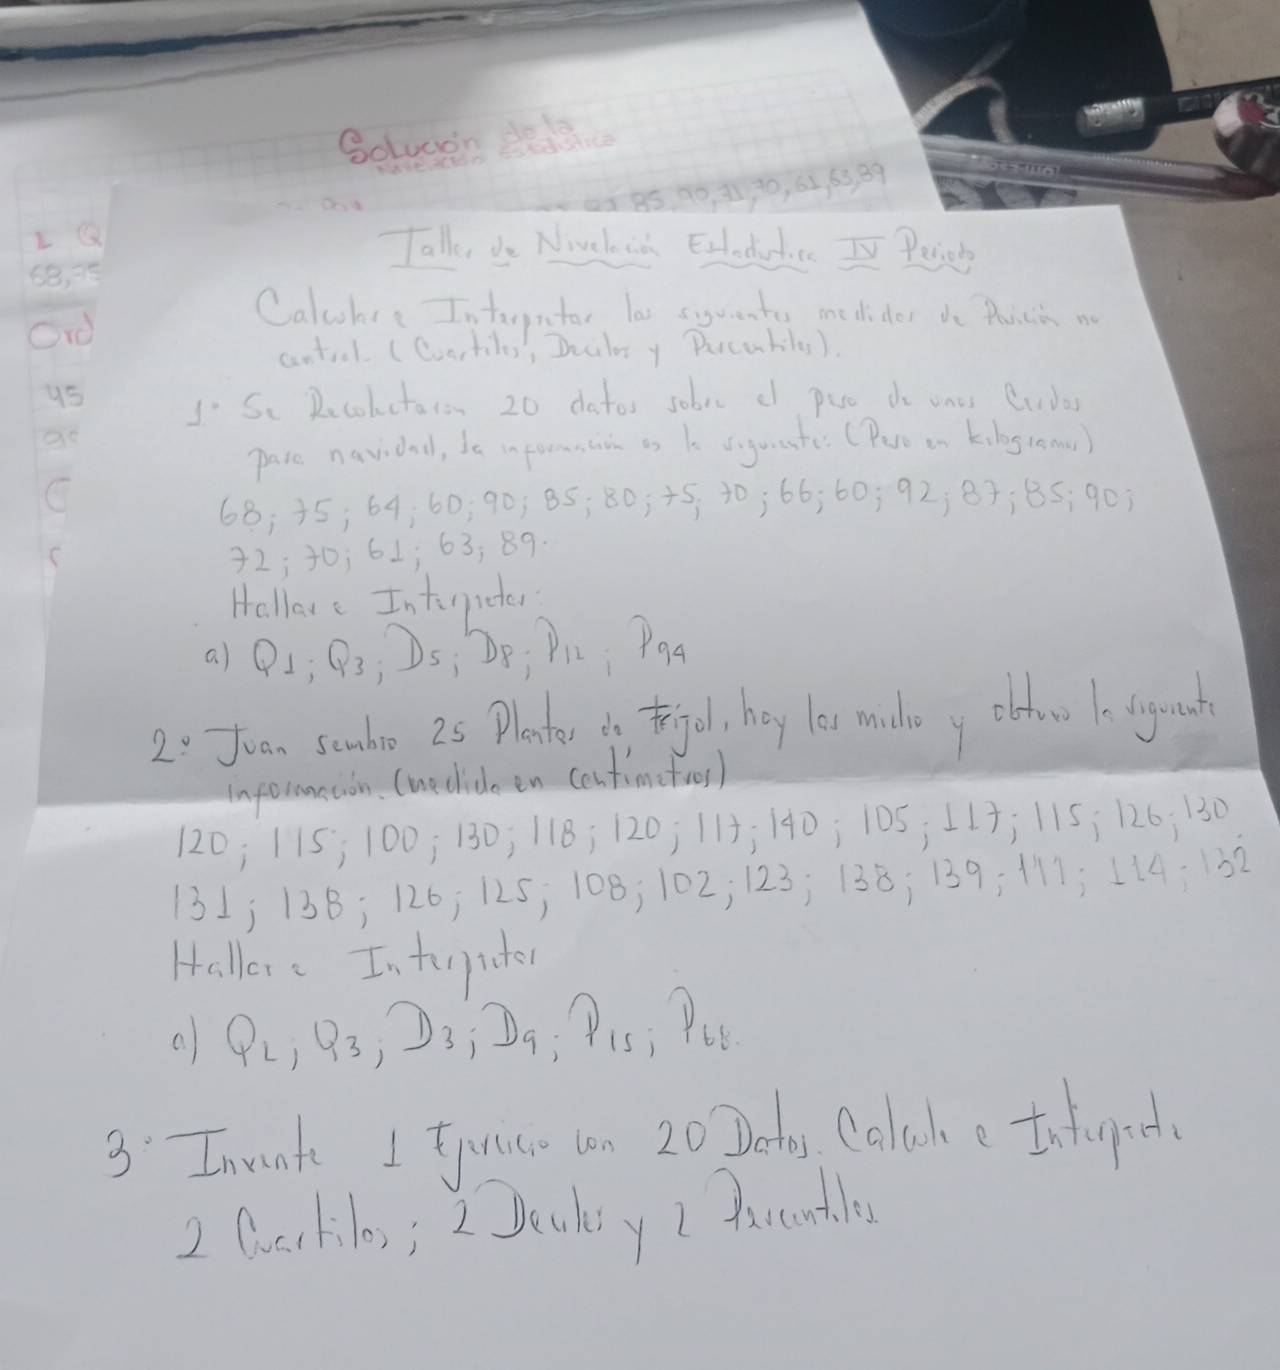 Solución de la
Nivelación Estadística
85, 90, 71, 70, 61, 63, 89
1 Q
68, 75
Ord
45
90
C
Taller de Nivelación Estadistica IV Periodo
Calcular e Interpretar las siguientes medidas de Posición no
central. (Cuartiles, Deciles y Percentiles).
1. Se Recolectaron 20 datos sobre el peso de unos Cerdos
para navidad, la información es la siguiente: (Peso en kilogramos)
68; 75; 64; 60; 90; 85; 80; 75; 70; 66; 60; 92; 87; 85; 90;
72; 70; 61; 63; 89.
Hallar e Interpretar:
a) Q1; Q3; D5; D8; P12; P94
2. Juan sembro 25 Plantas de frijol, hoy las midio y obtuvo la siguiente
información. (medida en centímetros)
120; 115; 100; 130; 118; 120; 117; 140; 105; 117; 115; 126; 130
131; 138; 126; 125; 108; 102; 123; 138; 139; 111; 114; 132
Hallar e Interpretar
a) Q2; Q3; D3; D9; P15; P68.
3. Invente 1 Ejercicio con 20 Datos. Calcule e Interprete
2 Cuartiles; 2 Deciles y 2 Percentiles